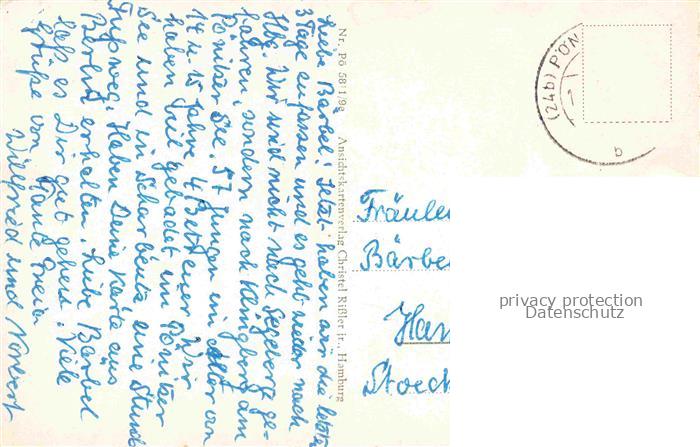 Liebe Bärbel! Jetzt haben wir die letzten
3 Tage zufassen und es geht wieder nach
Hbg. Wir sind nicht nach Segeberg ge-
fahren, sondern nach Klingberg am
Pönitzer See. 57 Jungen im Alter von
14 u. 15 Jahre 4 Betreuer. Wir
haben viel gebadet im Pönitzer
See und in Scharbeutz eine Stunde
Fußweg. Haben Deine Karte aus
Berlin erhalten. Liebe Bärbel
laß es Dir gut gehen. Viele
Grüße von Tante
Wilfried und Norbert
Nr. Pö 581/9a Ansichtskartenverlag Christel Rißler jr., Hamburg
(24b) PÖN
b
Fräule
Bärbe
Han
Stoeck
privacy protection
Datenschutz